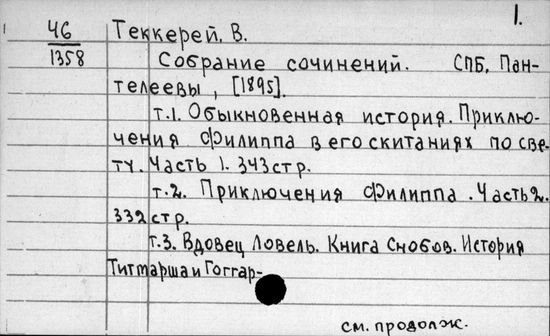 1.
46
1358
Теккерей. В.
Собрание сочинений. СПБ, Пан-
телеевы, [1895].
т.1. Обыкновенная история. Приклю-
чения Филиппа в его скитаниях по све-
ту. Часть 1. 343 стр.
т.2. Приключения Филиппа. Часть 2.
332 стр.
т.3. Вдовец Ловель. Книга Снобов. История
Титмарша и Гоггар-
см. продолж.